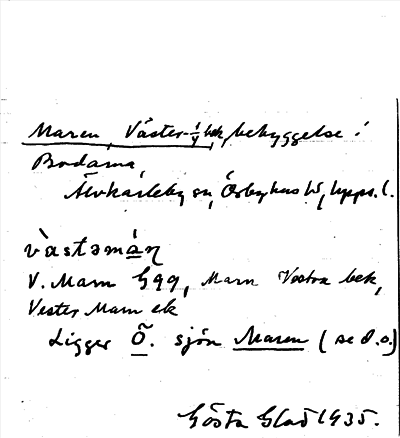 Maren, Väster- 1/4 bek, bebyggelse i
Bodarna
Älvkarleby sn, Örbyhus hd, Upps. l.
väståmàn
V. Marn G99, Marn Vestra bek,
Vester Marn ek
Ligger Ö. sjön Maren (se d.o.)
Gösta Glad 1935.